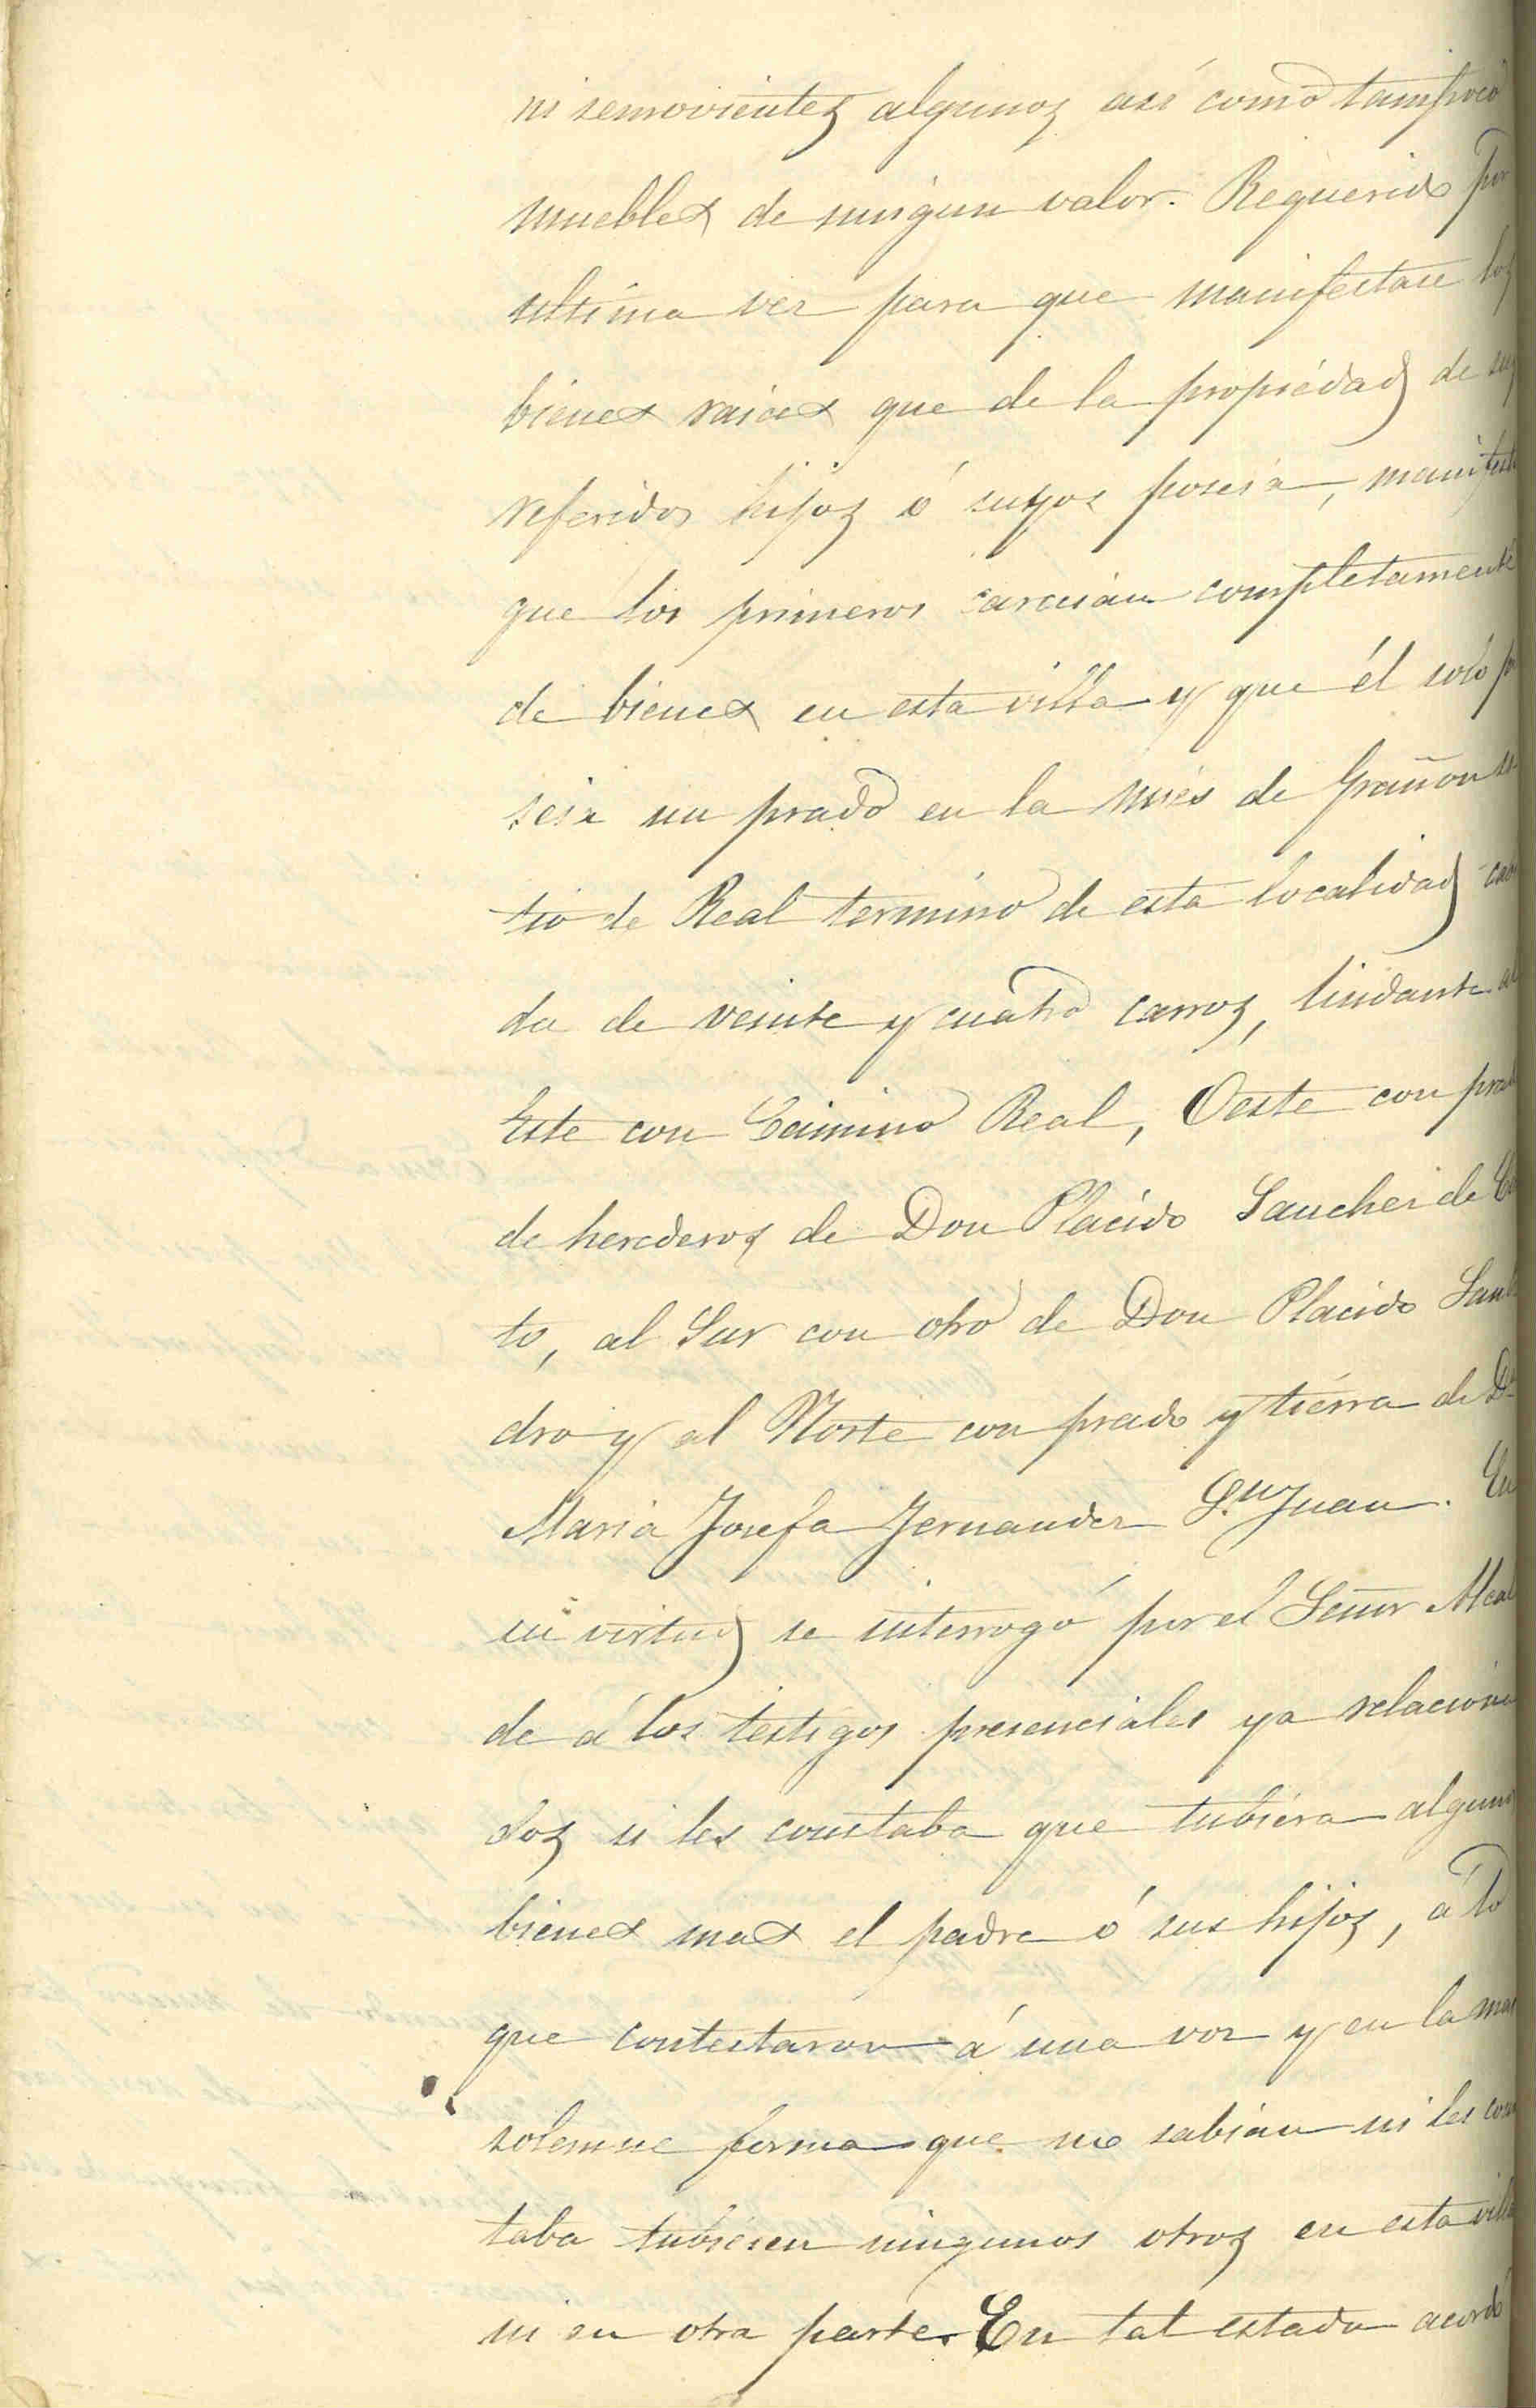 ni semovientes algunos así como tampoco
muebles de ningun valor. Requerido por
ultima vez para que manifestase los
bienes raices que de la propiedad de sus
referidos hijos ó suyos poseia, manifestó
que los primeros carcian completamente
de bienes en esta villa y que él solo po
seia un prado en la miés de Grañon si
tio de Real termino de esta localidad cabi
da de veinte y cuatro carros, lindante al
Este con Camino Real, Oeste con prado
de herederos de Don Placido Sanchez de
to, al Sur con otro de Don Placido
dro y al Norte con prado y tierra de Dª
Maria Josefa Fernandez Sn Juan. En
su virtud se interrogó por el Señor Alcal
de á los testigos presenciales ya relaciona
dos si les constaba que tubiera algunos
bienes mas el padre ó sus hijos, á lo
que contestaron á una voz y en la mas
solemne forma que no sabian ni les cons
taba tubiesen ningunos otros en esta villa
ni en otra parte. En tal estado acordó